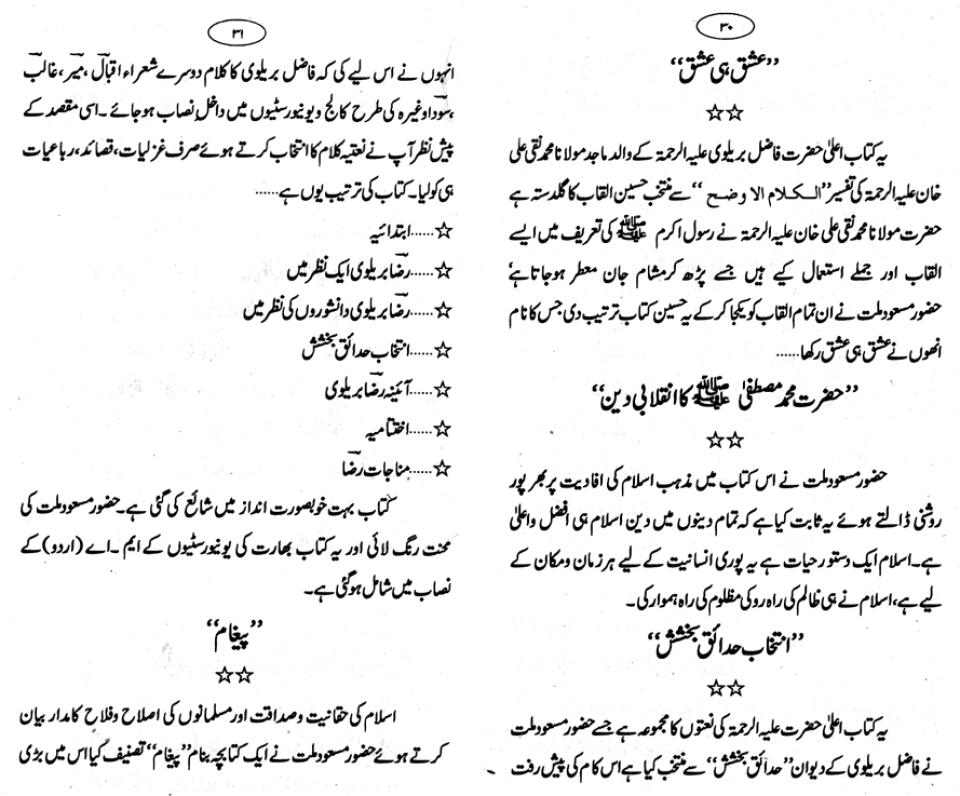 ۳۰
”عشق ہی عشق“
☆☆
یہ کتاب اعلیٰ حضرت فاضل بریلوی علیہ الرحمۃ کے والد ماجد مولانا محمد نقی علی
خان علیہ الرحمۃ کی تفسیر ”الکلام الاوضح“ سے منتخب حسین القاب کا گلدستہ ہے
حضرت مولانا محمد نقی علی خان علیہ الرحمۃ نے رسول اکرم ﷺ کی تعریف میں ایسے
القاب اور جملے استعمال کیے ہیں جسے پڑھ کر مشام جان معطر ہو جاتا ہے،
حضور مسعود ملت نے ان تمام القاب کو یکجا کر کے یہ حسین کتاب ترتیب دی جس کا نام
انھوں نے عشق ہی عشق رکھا......
”حضرت محمد مصطفیٰ ﷺ کا انقلابی دین“
☆☆
حضور مسعود ملت نے اس کتاب میں مذہب اسلام کی افادیت پر بھر پور
روشنی ڈالتے ہوئے یہ ثابت کیا ہے کہ تمام دینوں میں دین اسلام ہی افضل و اعلیٰ
ہے۔ اسلام ایک دستور حیات ہے یہ پوری انسانیت کے لیے ہر زمان و مکان کے
لیے ہے، اسلام نے ہی ظالم کی راہ روکی مظلوم کی راہ ہموار کی۔
”انتخاب حدائق بخشش“
☆☆
یہ کتاب اعلیٰ حضرت علیہ الرحمۃ کی نعتوں کا مجموعہ ہے جسے حضور مسعود ملت
نے فاضل بریلوی کے دیوان ”حدائق بخشش“ سے منتخب کیا ہے اس کام کی پیش رفت
۳۱
انہوں نے اس لیے کی کہ فاضل بریلوی کا کلام دوسرے شعراء اقبالؔ، میرؔ، غالبؔ
،سوداؔ وغیرہ کی طرح کالج و یونیورسٹیوں میں داخل نصاب ہو جائے۔ اسی مقصد کے
پیش نظر آپ نے نعتیہ کلام کا انتخاب کرتے ہوئے صرف غزلیات، قصائد، رباعیات
ہی کو لیا۔ کتاب کی ترتیب یوں ہے......
☆......ابتدائیہ
☆......رضاؔ بریلوی ایک نظر میں
☆......رضاؔ بریلوی دانشوروں کی نظر میں
☆......انتخاب حدائق بخشش
☆......آئینہ رضاؔ بریلوی
☆......اختتامیہ
☆......مناجات رضاؔ
کتاب بہت خوبصورت انداز میں شائع کی گئی ہے۔ حضور مسعود ملت کی
محنت رنگ لائی اور یہ کتاب بھارت کی یونیورسٹیوں کے ایم۔ اے (اردو) کے
نصاب میں شامل ہو گئی ہے۔
”پیغام“
☆☆
اسلام کی حقانیت و صداقت اور مسلمانوں کی اصلاح و فلاح کا مدار بیان
کرتے ہوئے حضور مسعود ملت نے ایک کتابچہ بنام ”پیغام“ تصنیف کیا اس میں بڑی